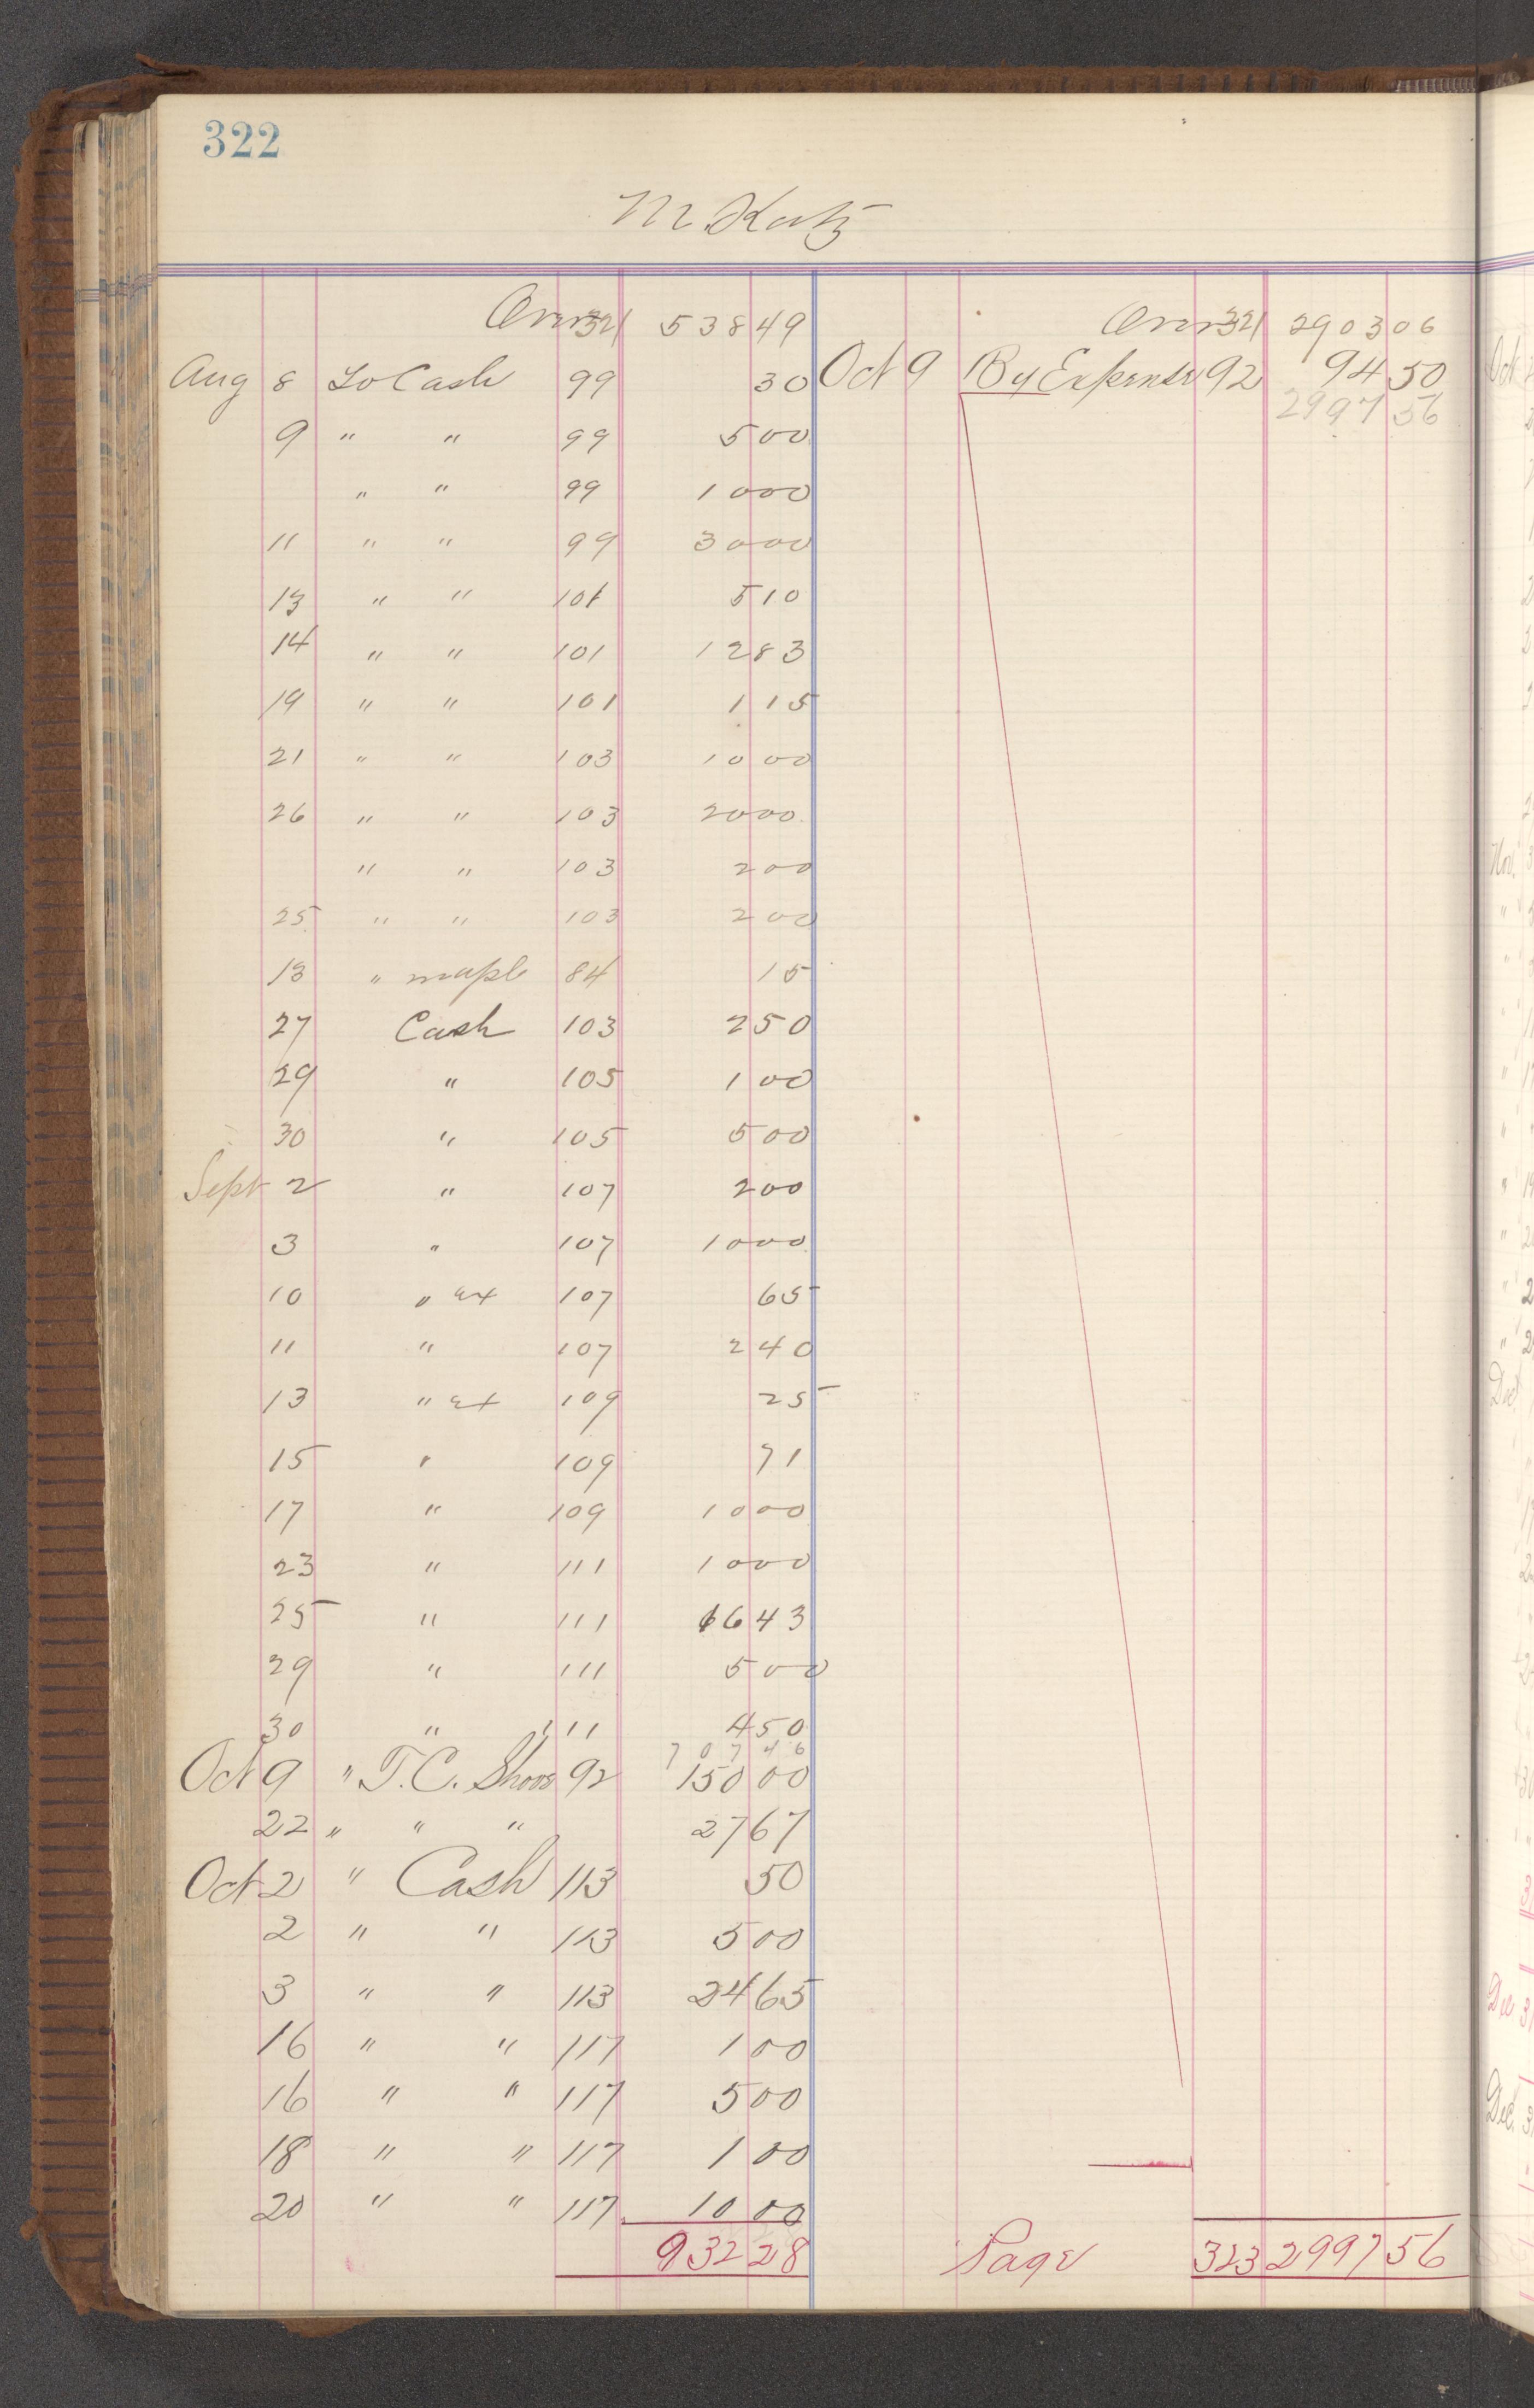 322
M. Katz
Over 321 538 49 Over 321 2903 06
Aug 8 To Cash 99 30 Oct 9 By Expense 92 94 50
2997 56
9 " " 99 5 00
" " 99 10 00
11 " " 99 30 00
13 " " 101 5 10
14 " " 101 12 83
19 " " 101 1 15
21 " " 103 10 00
26 " " 103 20 00
" " 103 2 00
25 " " 103 2 00
13 " maple 84 15
27 Cash 103 2 50
29 " 105 1 00
30 " 105 5 00
Sept 2 " 107 2 00
3 " 107 10 00
10 " ex 107 65
11 " 107 2 40
13 " ex 109 25
15 " 109 71
17 " 109 10 00
23 " 111 10 00
25 " 111 16 43
29 " 111 5 00
30 " 111 4 50
707 46
Oct 9 " T. C. Shoos 92 150 00
22 " " " 27 67
Oct 2 " Cash 113 50
2 " " 113 5 00
3 " " 113 24 65
16 " " 117 1 00
16 " " 117 5 00
18 " " 117 1 00
20 " " 117 10 00
932 28 Page 323 2997 56